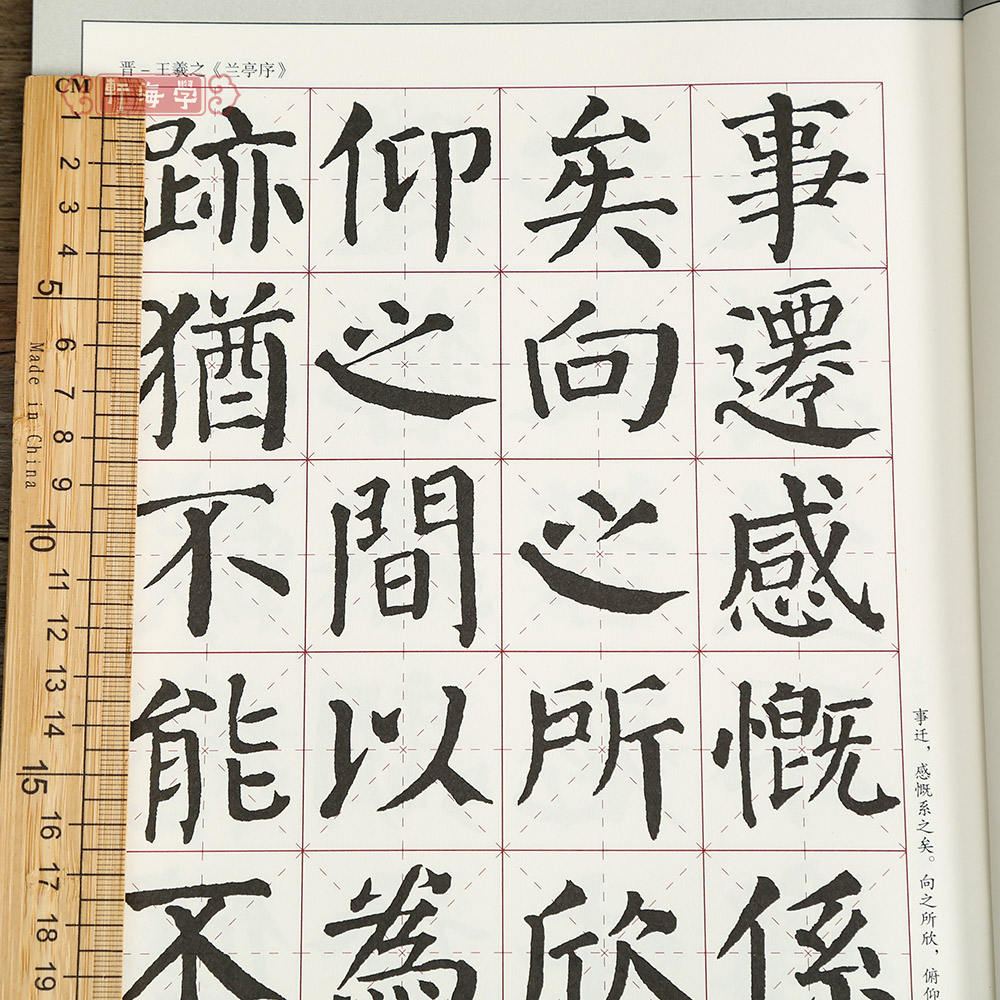 晋－王羲之《兰亭序》
軒海學
事遷感慨係
矣向之所欣
仰之間以為
跡猶不能不
事迁，感慨系之矣。向之所欣，俯仰
CM
1
2
3
4
5
6
7
8
9
10
11
12
13
14
15
16
17
18
19
Made in China